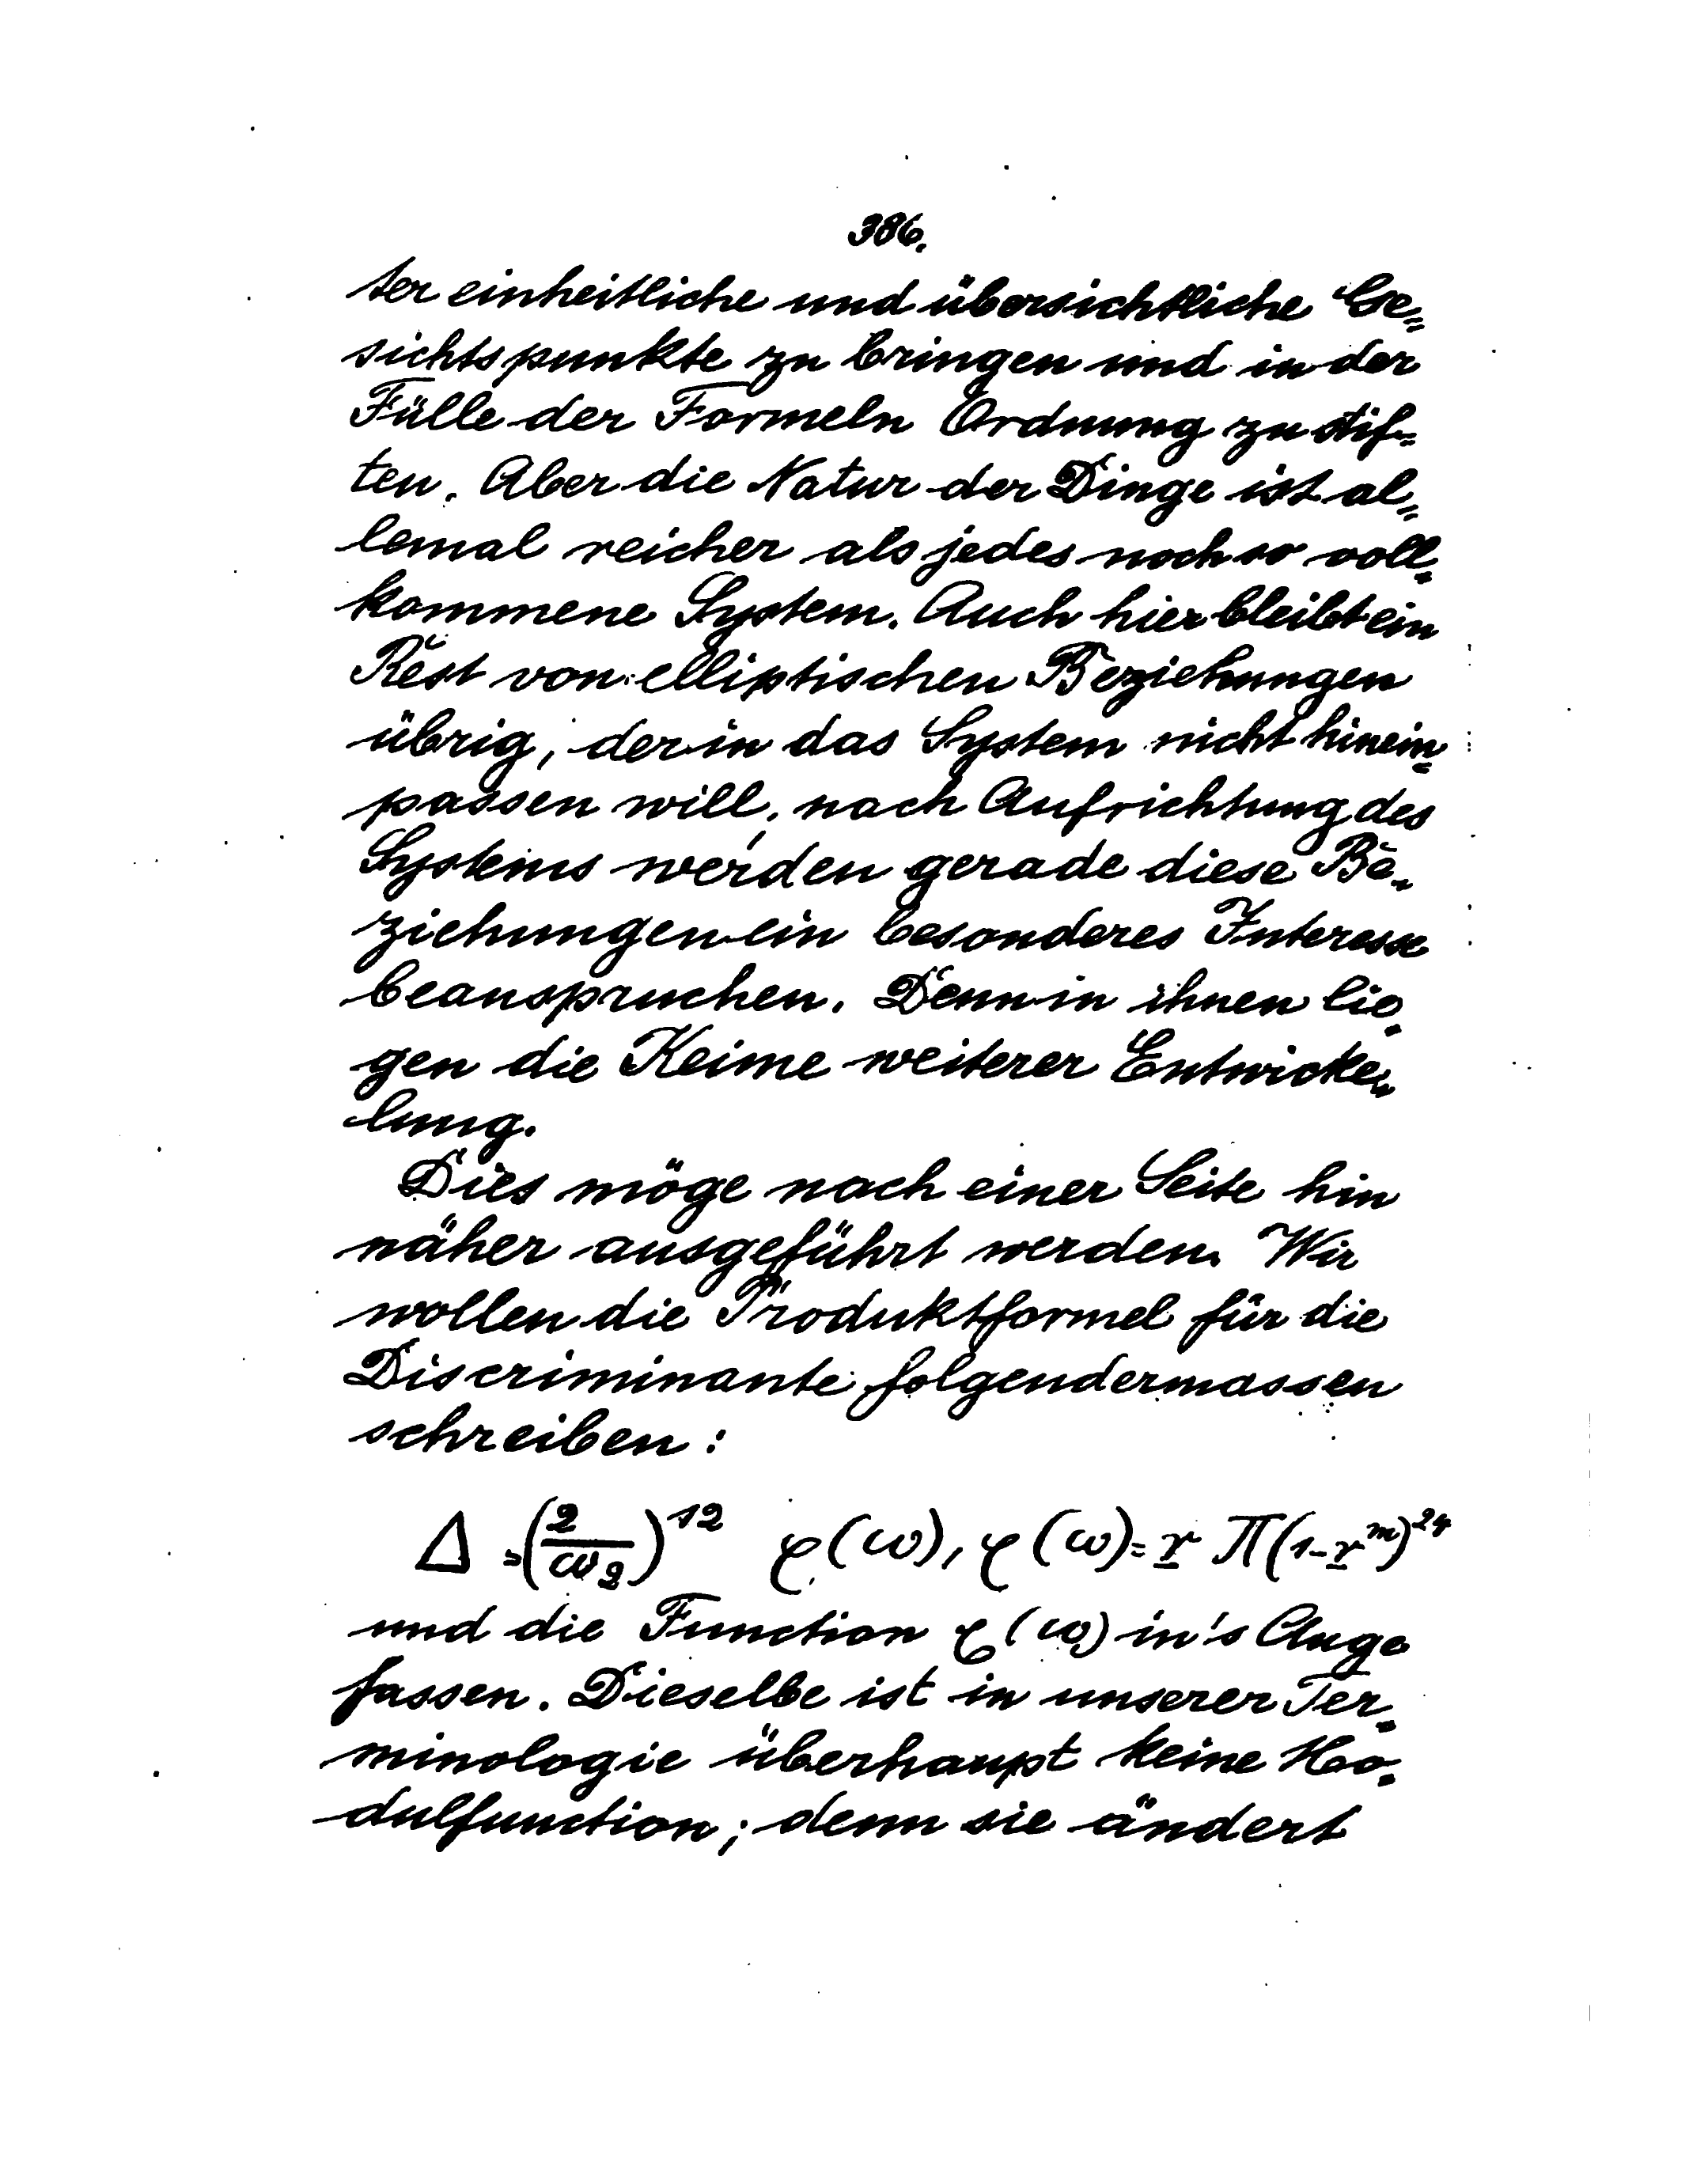 386.
ter einheitliche und übersichtliche Ge=
sichtspunkte zu bringen und in der
Fülle der Formeln Ordnung zu stif=
ten. Aber die Natur der Dinge ist al=
lemal reicher als jedes noch so voll=
kommene System. Auch hier bleibt ein
Rest von elliptischen Beziehungen
übrig, der in das System nicht hinein=
passen will; nach Aufrichtung des
Systems werden gerade diese Be=
ziehungen ein besonderes Interesse
beanspruchen. Denn in ihnen lie=
gen die Keime weiterer Entwicke=
lung.
Dies möge nach einer Seite hin
näher ausgeführt werden. Wir
wollen die Produktformel für die
Discriminante folgendermassen
schreiben:
Δ = (2/ω₂)¹² φ(ω), φ(ω) = r Π(1-r^m)²⁴
und die Function φ(ω) in's Auge
fassen. Dieselbe ist in unserer Ter=
minologie überhaupt keine Mo=
dulfunction; denn sie ändert